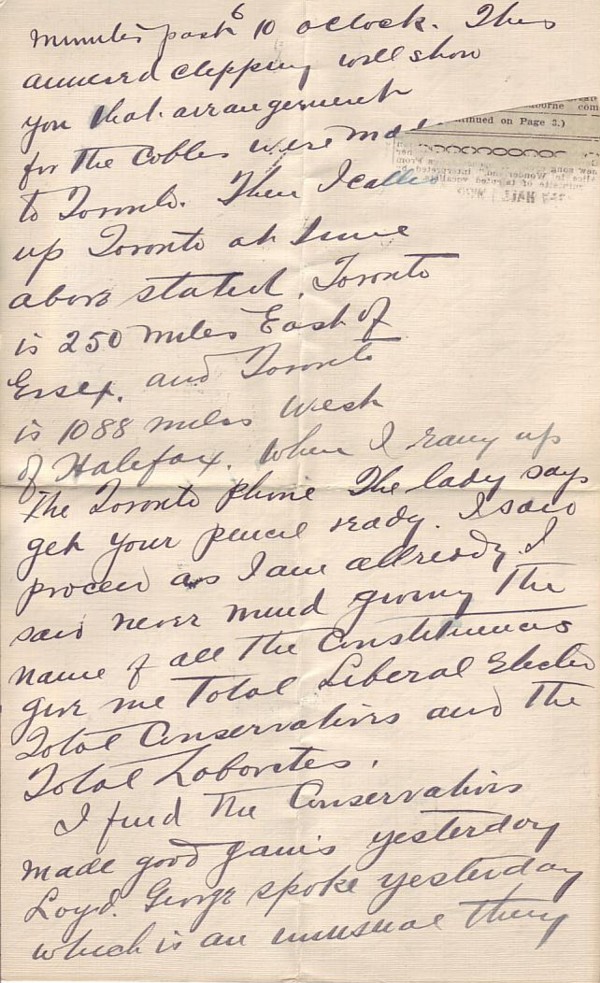 minutes past 10 oclock. This
annexed clipping will show
you that arrangement
for the Cables were made
to Toronto. Then I called
up Toronto at time
above stated. Toronto
is 250 miles East of
Essex. and Toronto
is 1088 miles West
of Halifax. When I rang up
the Toronto phone The lady says
get your pencil ready. I said
proceed as I am allready I
said never mind giving The
name of all The Constituencies
give me Total Liberal Elected
Total Conservatives and The
Total Laborites.
I find The Conservatives
made good gains yesterday
Loyd. George spoke yesterday
which is an unusual thing
tinued on Page 2.)